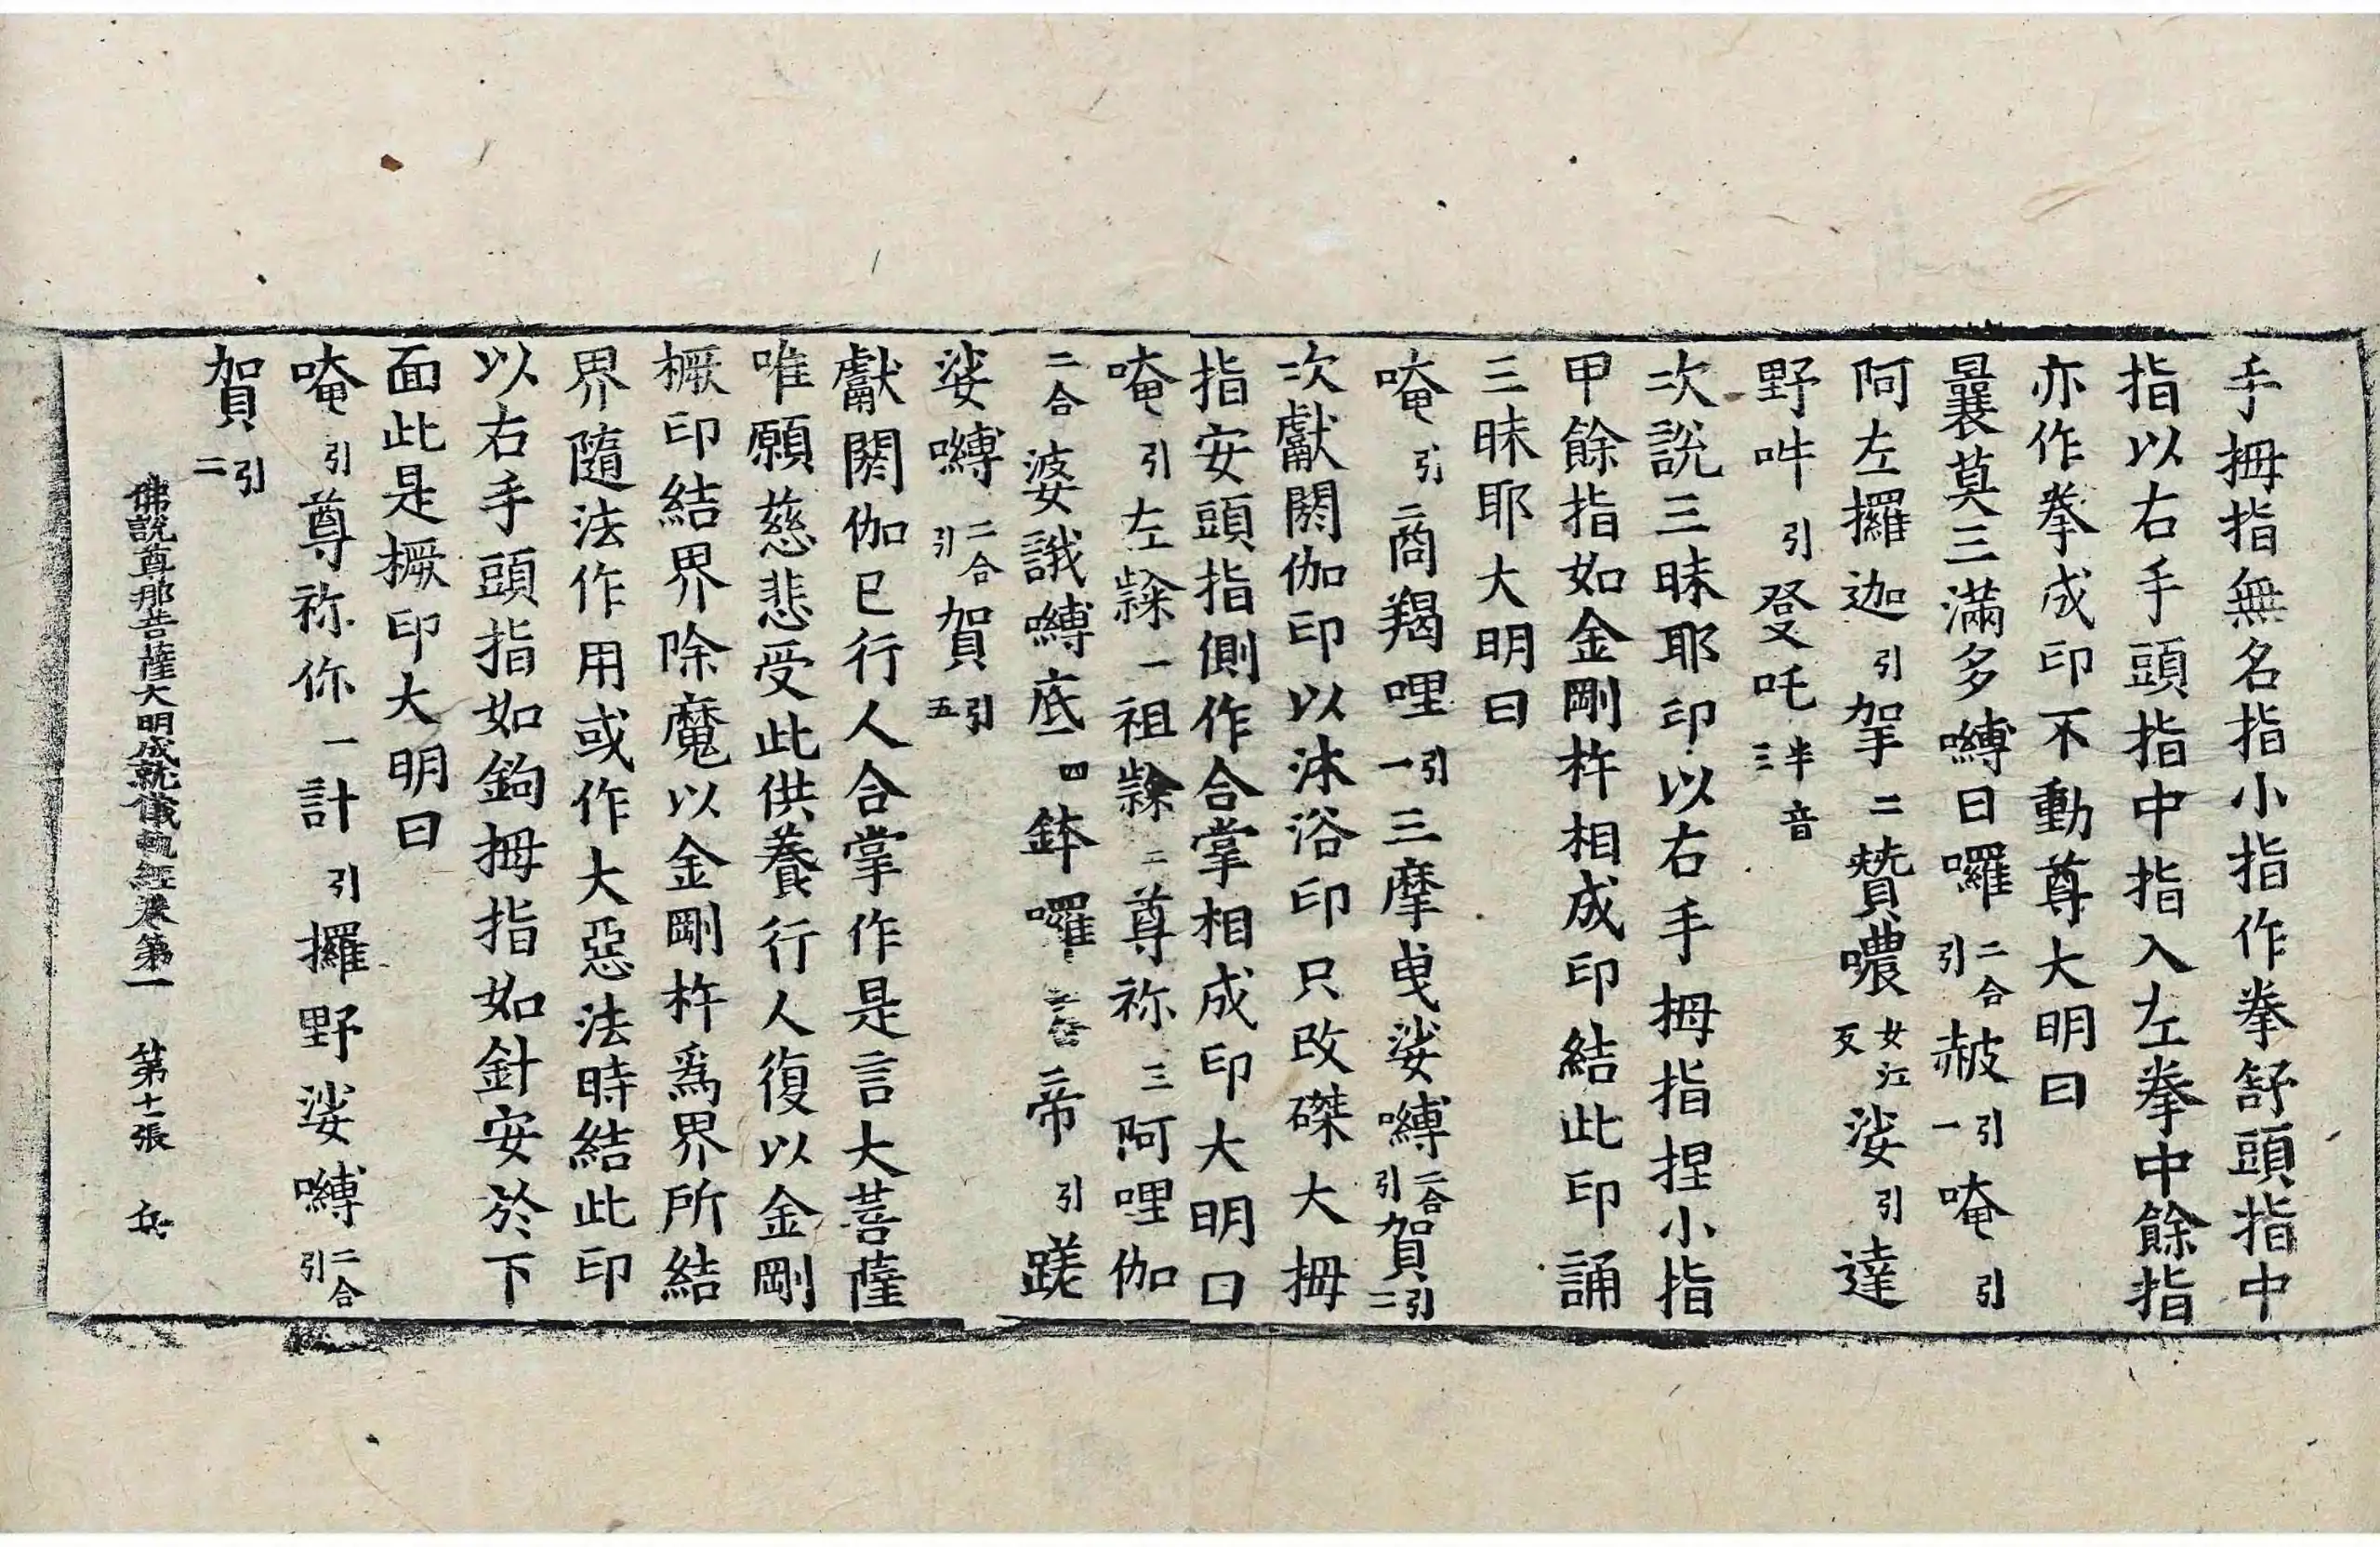 手拇指無名指小指作拳舒頭指中
指以右手頭指中指入左拳中餘指
亦作拳成印不動尊大明曰
曩莫三滿多嚩日囉二合引赧引一唵引
阿左攞迦引拏二贊噥女江反娑引達
野吽引發吒半音三
次說三昧耶印以右手拇指捏小指
甲餘指如金剛杵相成印結此印誦
三昧耶大明曰
唵引商羯哩引一三摩曳娑嚩二合引賀引二
次獻閼伽印以沐浴印只改磔大拇
指安頭指側作合掌相成印大明曰
唵引左隸一祖隸二尊祢三阿哩伽
二合婆誐嚩底四鉢囉二合帝引蹉
娑嚩二合引賀引五
獻閼伽已行人合掌作是言大菩薩
唯願慈悲受此供養行人復以金剛
橛印結界除魔以金剛杵爲界所結
界隨法作用或作大惡法時結此印
以右手頭指如鉤拇指如針安於下
面此是橛印大明曰
唵引尊祢你一計引攞野娑嚩二合引
賀引二
佛說尊那菩薩大明成就儀軌經卷第一　第十一張